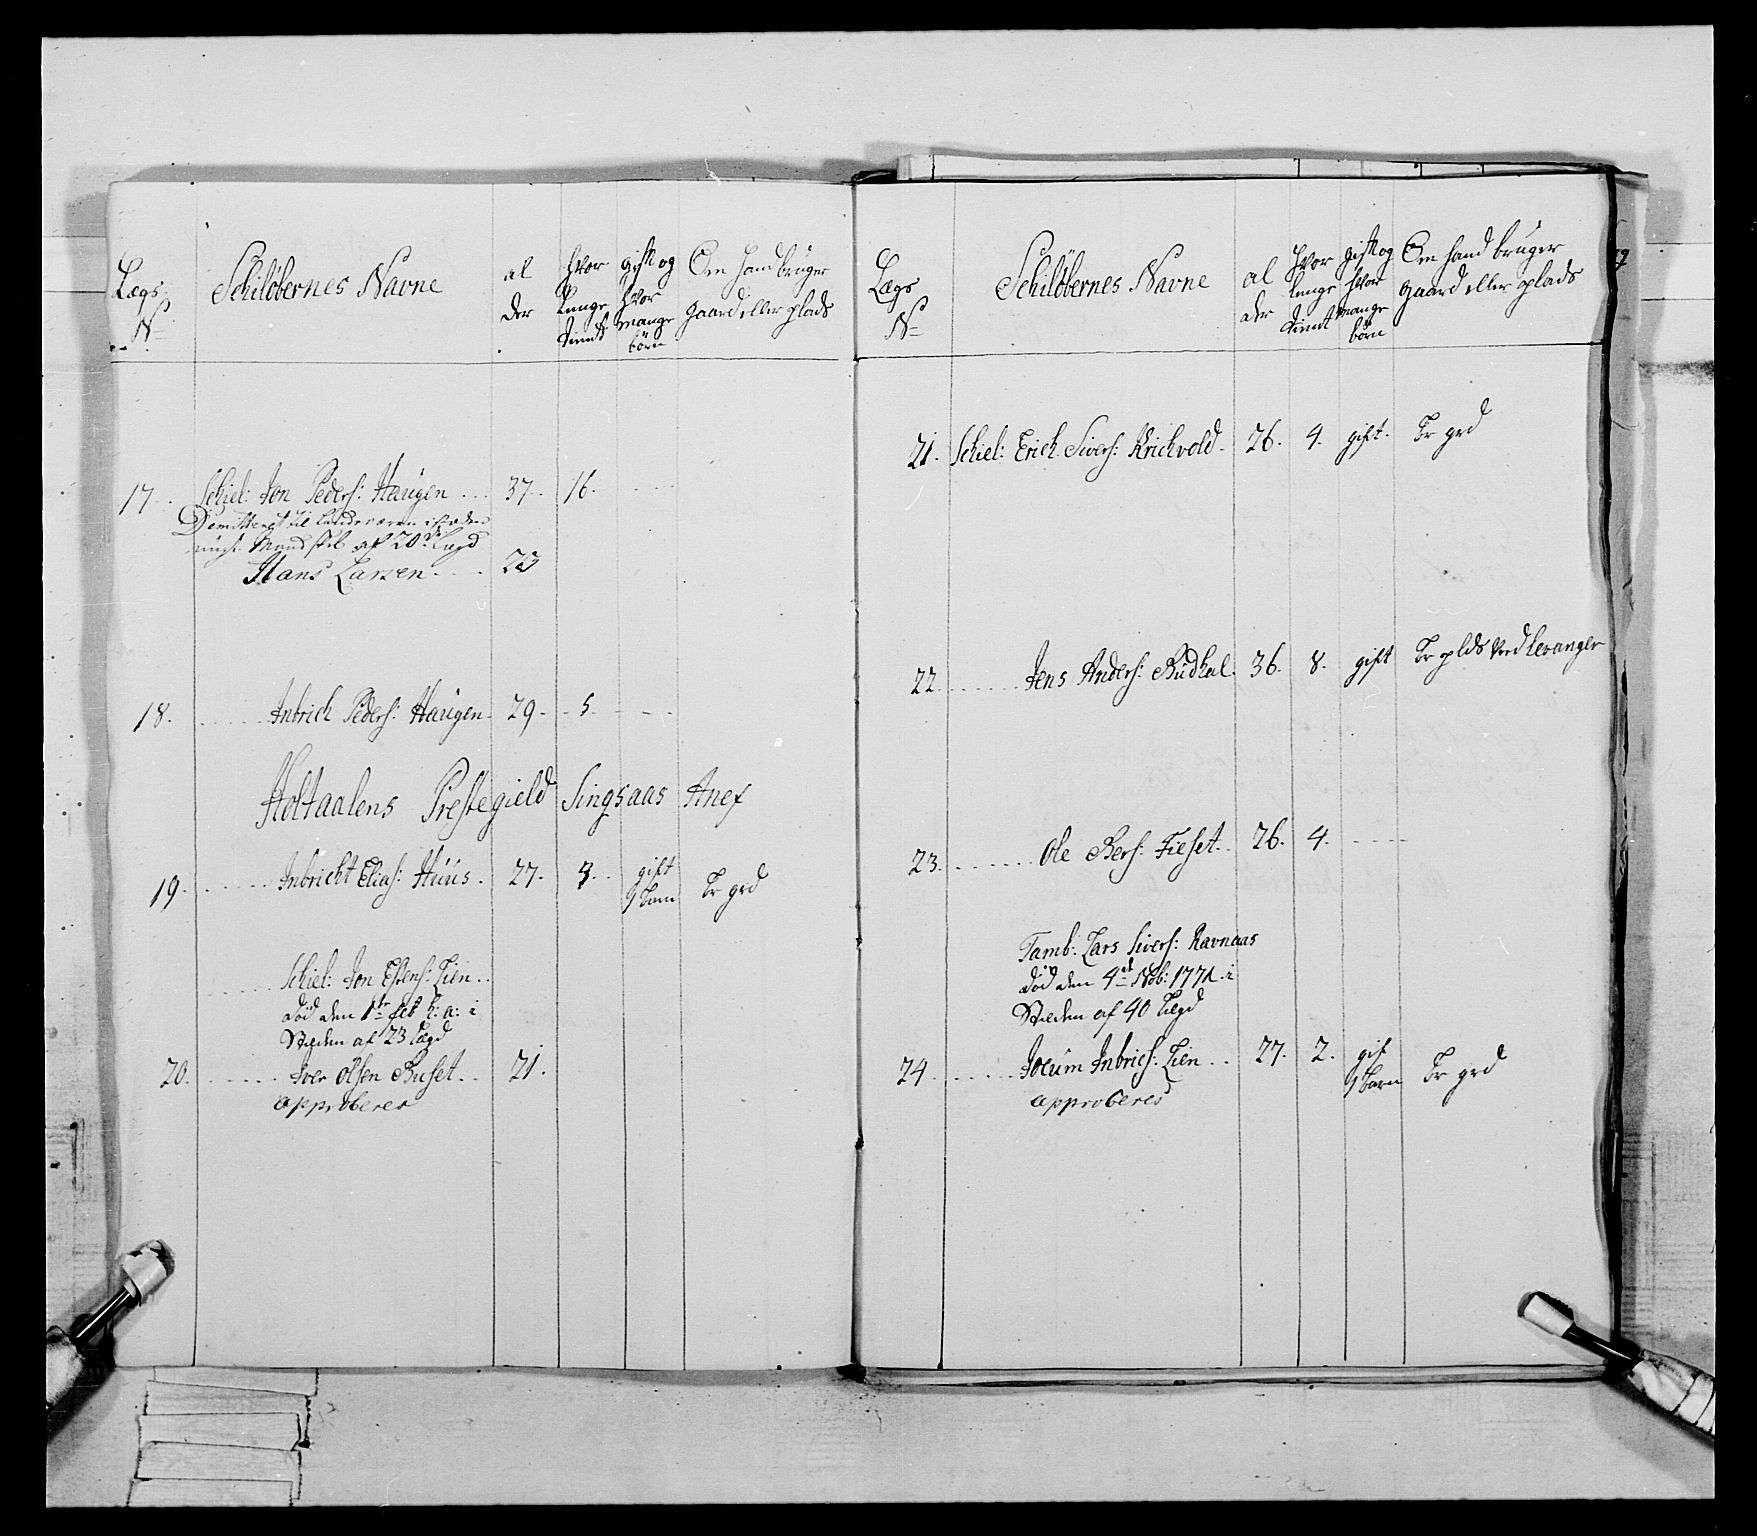 Lægs N=
Schilöbernes Navne
al der
hvor lenge tient
gift og hvor mange börn
Om hand bruger gaard eller plads
17. Schiel: Jon Peders: Haugen 37. 16.
Demitteret til landeværn i steden
Mandskb af 20de Lægd
Hans Larsen 23
18. Inbrich Peders: Haugen 29. 5.
Holtaalens Prestegield Singsaas Anex
19. Inbricht Elias: Huus. 27. 3. gift 1 barn br grd
Schiel: Jon Estens: Lien
död den 1te feb h: a: i
Steden af 23 Lægd
20. Iver Olsen Buset 21.
approberes
Lægs N=
Schilöbernes Navne
al der
hvor lenge tient
gift og hvor mange börn
Om hand bruger gaard eller plads
21. Schiel: Erich Sivers: Krichvold 26. 4. gift. br grd
22. Jens Anders: Budhal 36. 8. gift br plds ved levanger
23. Ole Bers: Fieset 26. 4.
Tamb: Lars Sivers: Ravnaas
död den 4de Nob: 1771 i
Steden af 40 Lægd
24. Jocum Inbrics: Lien 27. 2. gif 1 barn br grd
approberes